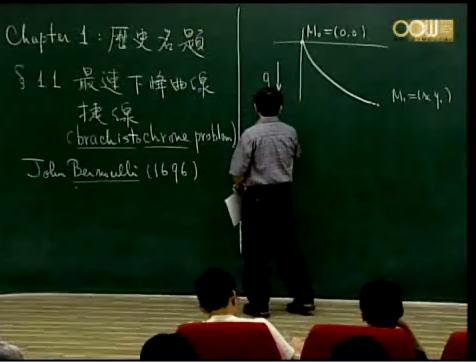 Chapter 1: 歷史名題
§1.1 最速下降曲線
捷線
(brachistochrone problem)
John Bernoulli (1696)
M₀=(0,0)
g
M₁=(x₁y₁)
OCW